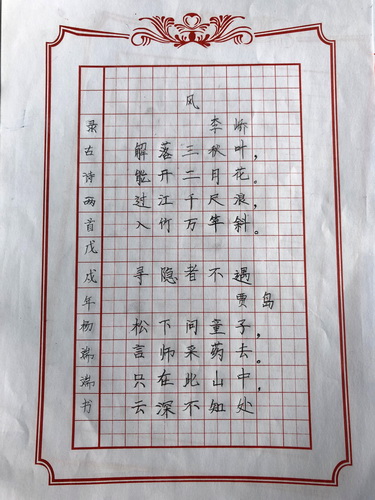 风
李峤
解落三秋叶，
能开二月花。
过江千尺浪，
入竹万竿斜。
寻隐者不遇
贾岛
松下问童子，
言师采药去。
只在此山中，
云深不知处
录古诗两首戊戌年杨端端书